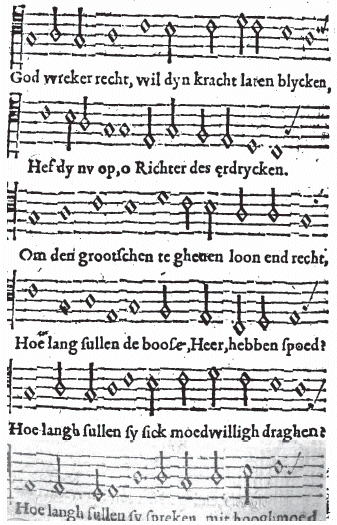 God wreker recht, wil dyn kracht laten blycken,
Hef dy nv op, o Richter des ęrdrycken.
Om den grootschen te gheuen loon end recht,
Hoe lang sullen de boose, Heer, hebben spoed?
Hoe langh sullen sy sick moedwilligh draghen?
Hoe langh sullen sy spreken, mit hooghmoed